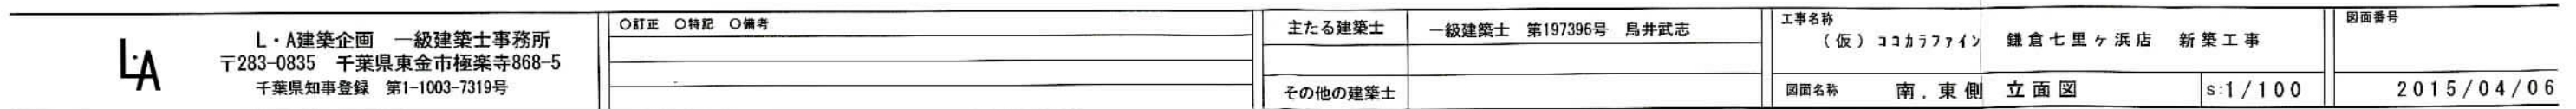 L・A
L・A建築企画 一級建築士事務所
〒283-0835 千葉県東金市極楽寺868-5
千葉県知事登録 第1-1003-7319号
○訂正 ○特記 ○備考
主たる建築士 一級建築士 第197396号 鳥井武志
その他の建築士
工事名称
(仮)ココカラファイン 鎌倉七里ヶ浜店 新築工事
図面名称 南,東側 立面図 s:1/100
図面番号
2015/04/06